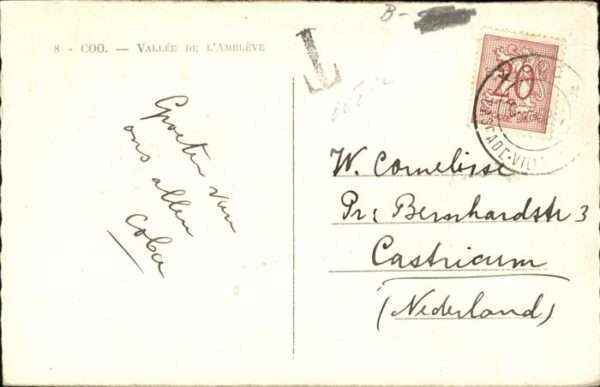 8 - COO. — VALLÉE DE L'AMBLÈVE
B-
T
20c
Groeten van
ons allen
Coba
W. Cornelisse
Pr: Bernhardstr 3
Castricum
(Nederland)